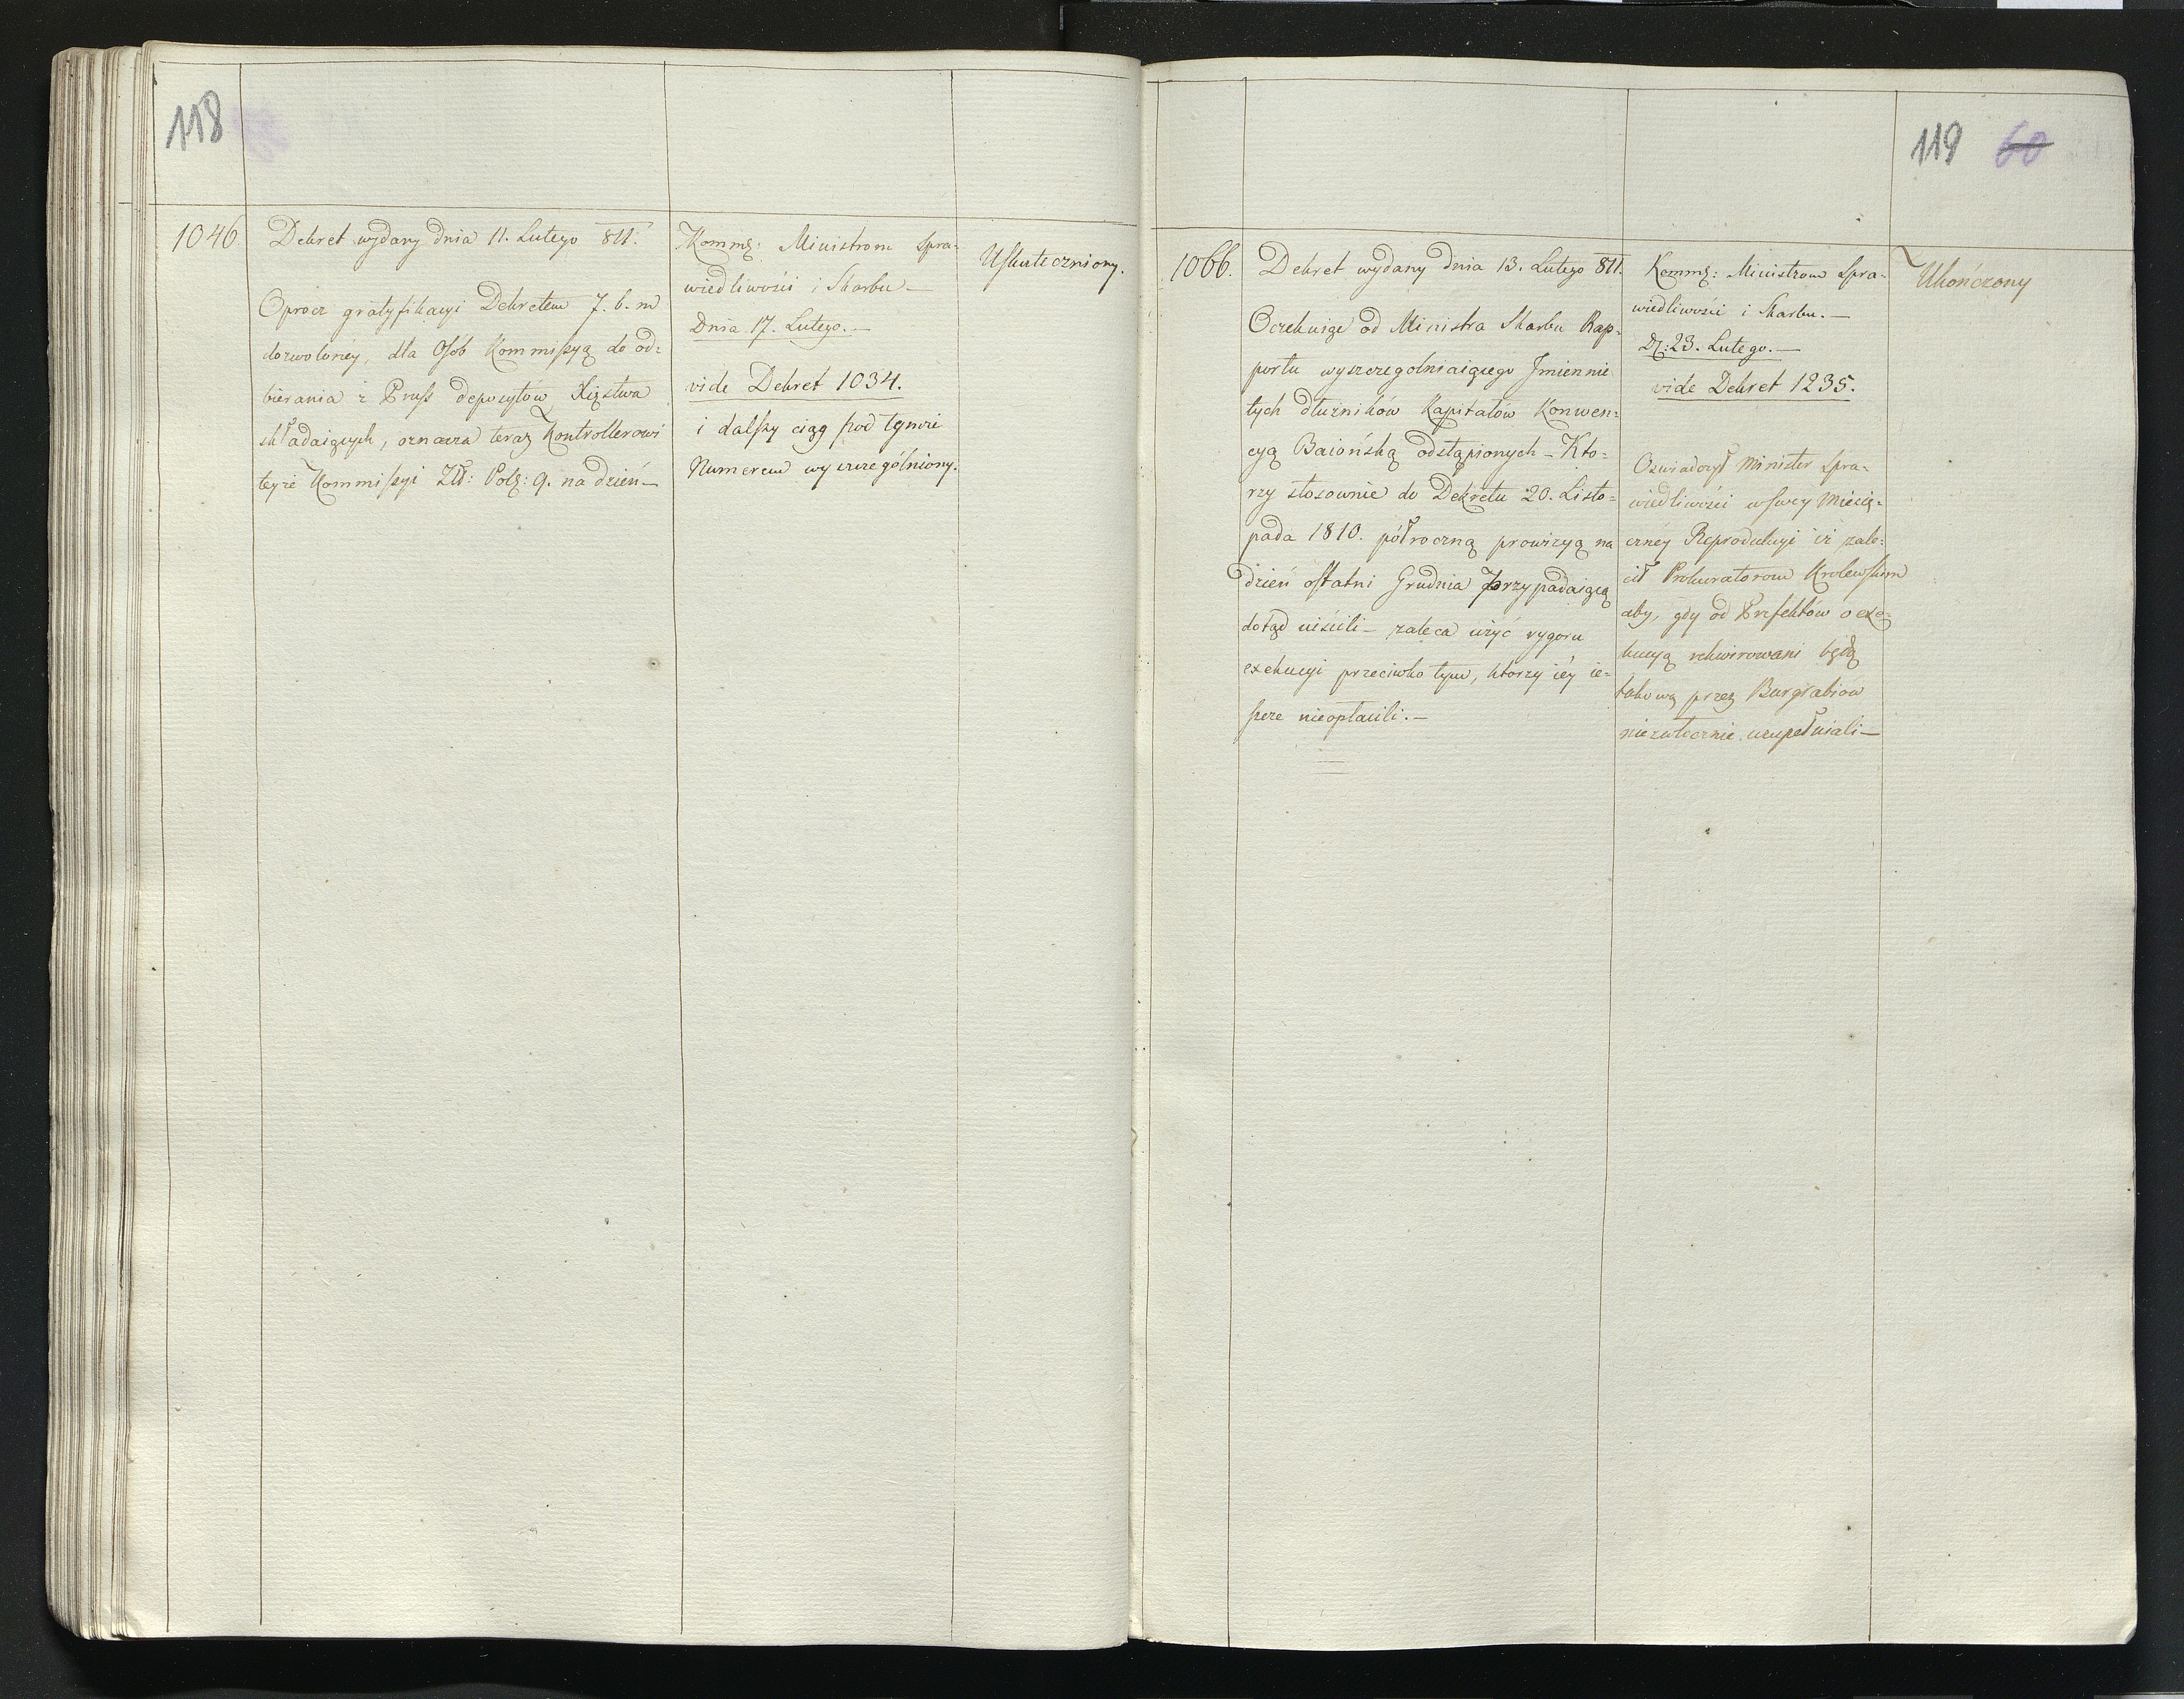 118
1046.
Dekret wydany dnia 11. Lutego 811.
Oprocz gratyfikacyi Dekretem 7. b. m
dozwoloney, dla Osób Kommissyą do od=
bierania z Pruss depozytów Xięstwa
składaiących, oznacza teraz Kontrollerowi
teyże Kommissyi Zł: Pols: 9. na dzień —
Komms: Ministrom Spra=
wiedliwości i Skarbu —
Dnia 17. Lutego. —
vide Dekret 1034.
i dalszy ciąg pod tymże
Numerem wyszczególniony.
Uskuteczniony.
119 60
1066.
Dekret wydany dnia 13. Lutego 811.
Oczekuiąc od Ministra Skarbu Rap=
portu wyszczegolniaiącego Jmiennie
tych dłużników Kapitałów Konwen=
cyą Baiońską odstąpionych — Któ=
rzy stosownie do Dekretu 20. Listo=
pada 1810. półroczną prowizyą na
dzień ostatni Grudnia przypadaiącą
dotąd uiścili — zaleca użyć rygoru
exekucyi przeciwko tym, którzy iéy ie=
szcze nieopłacili. —
Komms: Ministrom Spra=
wiedliwości i Skarbu. —
D: 23. Lutego. —
vide Dekret 1235.
Oswiadczył Minister Spra=
wiedliwości w swey Miesię=
czney Reprodukcyi iż zale=
cił Prokuratorom Krolewskim
aby, gdy od Prefektów o exe=
kucyą rekwirowani będą
takową przez Burgrabiow
niezwłocznie uzupełniali —
Ukończony